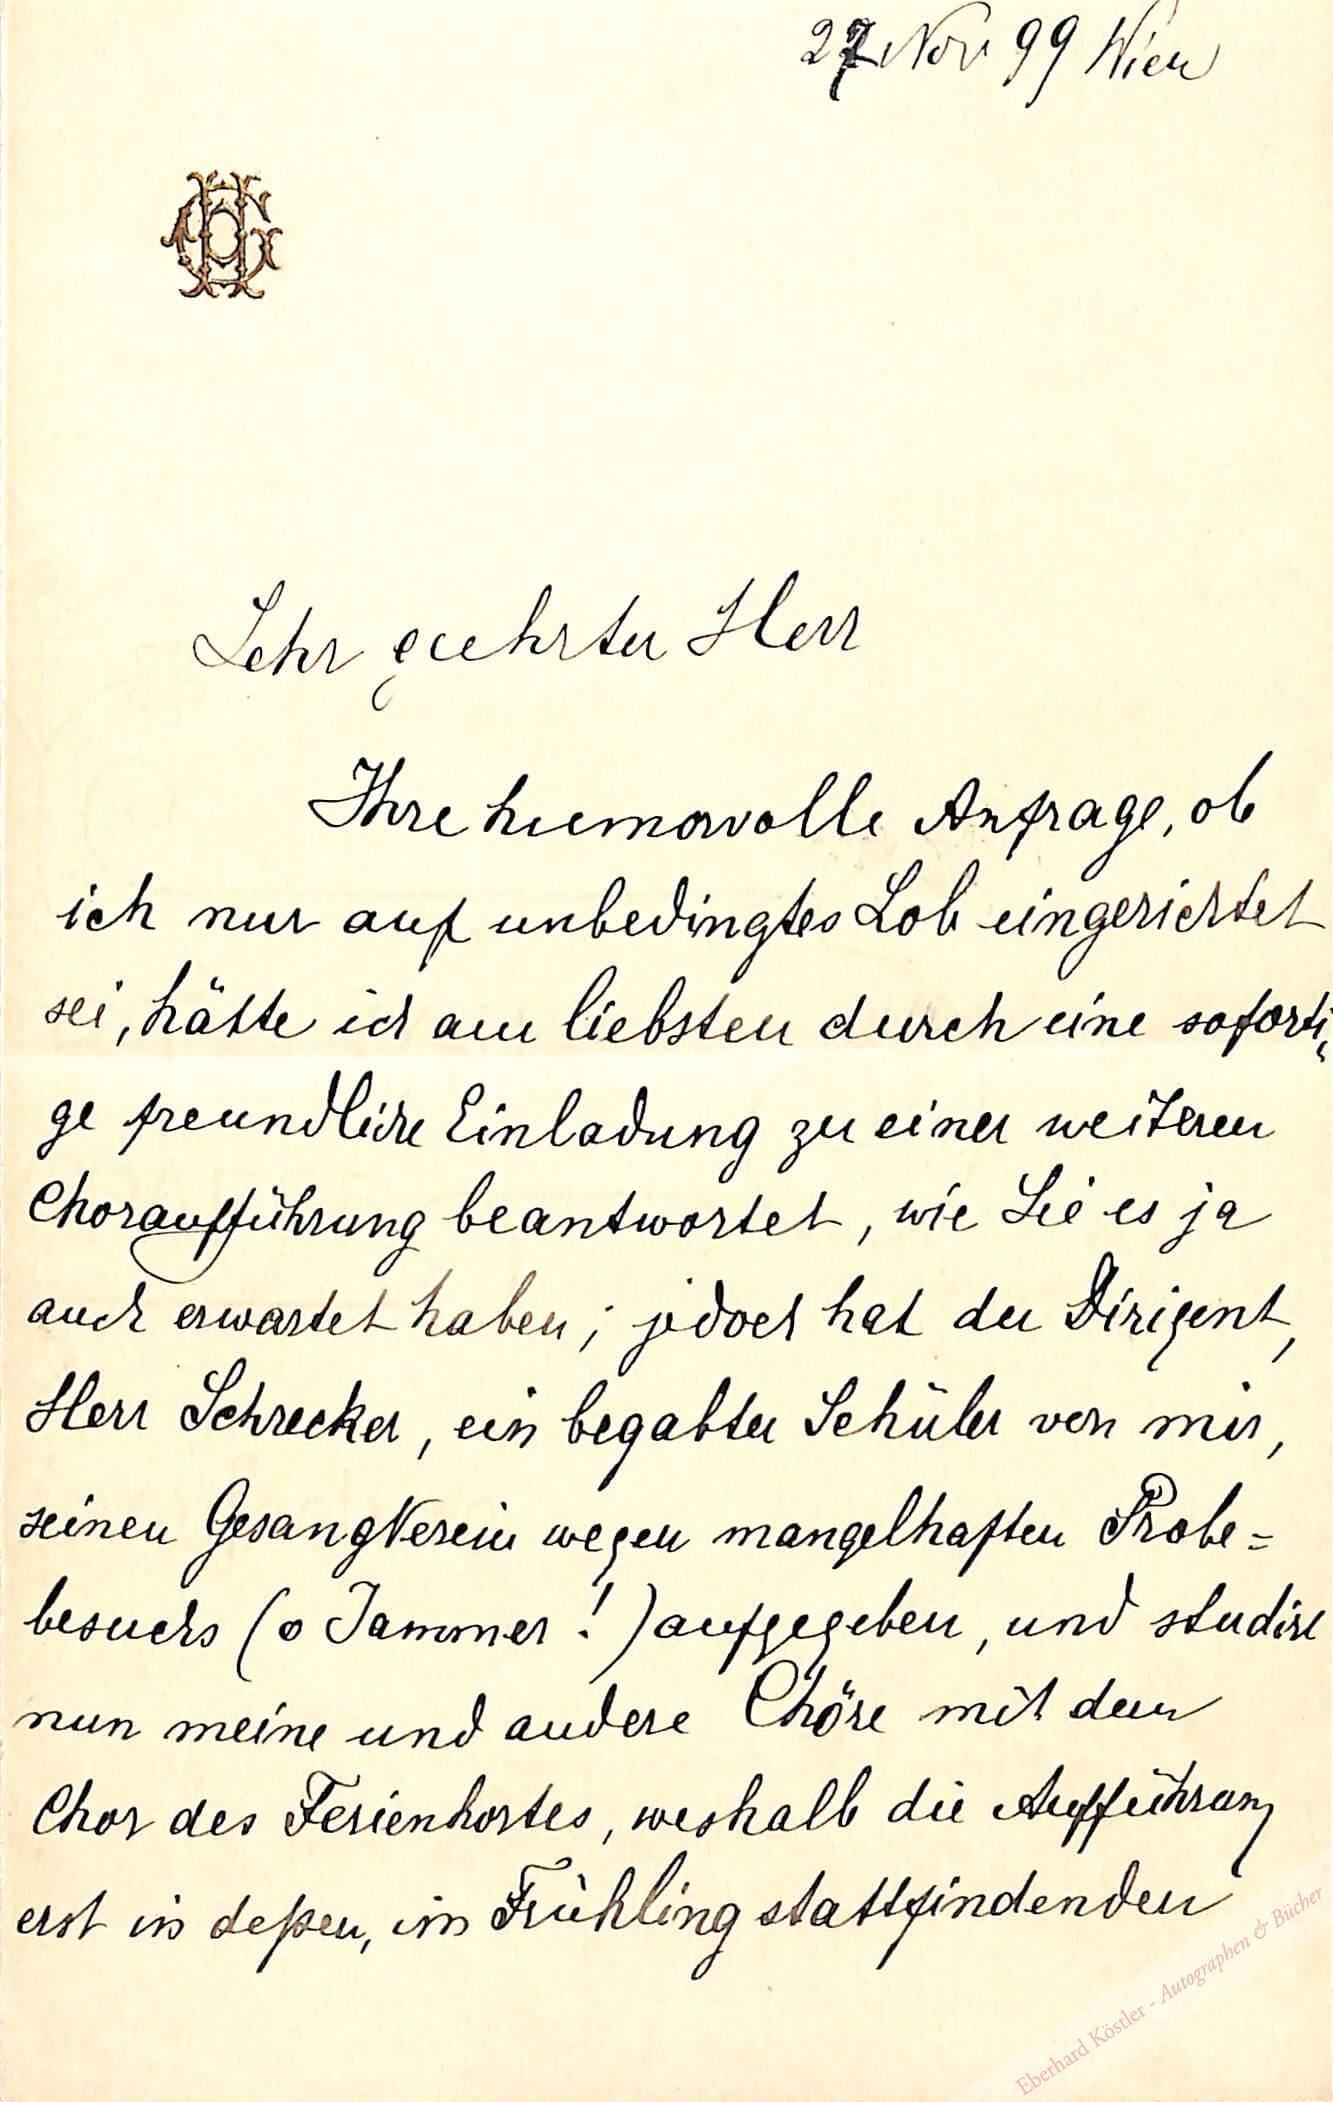 27 Nov 99 Wien
HG
Sehr geehrter Herr
Ihre humorvolle Anfrage, ob
ich nur auf unbedingtes Lob eingerichtet
sei, hätte ich am liebsten durch eine soforti„
ge freundliche Einladung zu einer weiteren
Choraufführung beantwortet, wie Sie es ja
auch erwartet haben; jedoch hat der Dirigent,
Herr Schrecker, ein begabter Schüler von mir,
seinen GesangVerein wegen mangelhaften Probe=
besuchs (o Jammer!) aufgegeben, und studirt
nun meine und andere Chöre mit dem
Chor des Ferienhortes, weshalb die Aufführung
erst in deßen, im Frühling stattfindenden
Eberhard Köstler - Autographen & Bücher